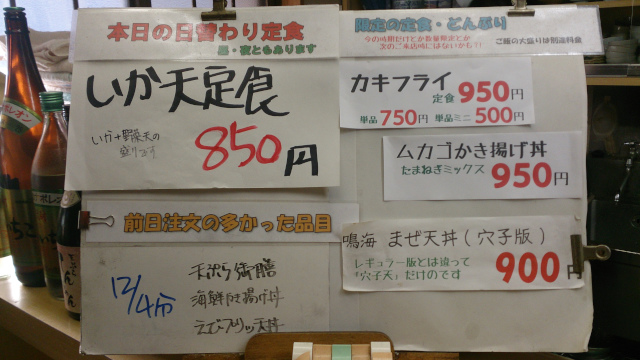 本日の日替わり定食
昼・夜ともあります
いか天定食
いか+野菜天の
盛り合う
850円
前日注文の多かった品目
12/4分
天ぷら御膳
海鮮かき揚げ丼
えびプリッ天丼
限定の定食・どんぶり
今の時期だけとか数量限定とか
次のご来店時にはないかも?!
ご飯の大盛りは別途料金
カキフライ
定食 950円
単品 750円 単品ミニ 500円
ムカゴかき揚げ丼
たまねぎミックス 950円
鳴海 まぜ天丼(穴子版)
レギュラー版とは違って
「穴子天」だけのです
900円